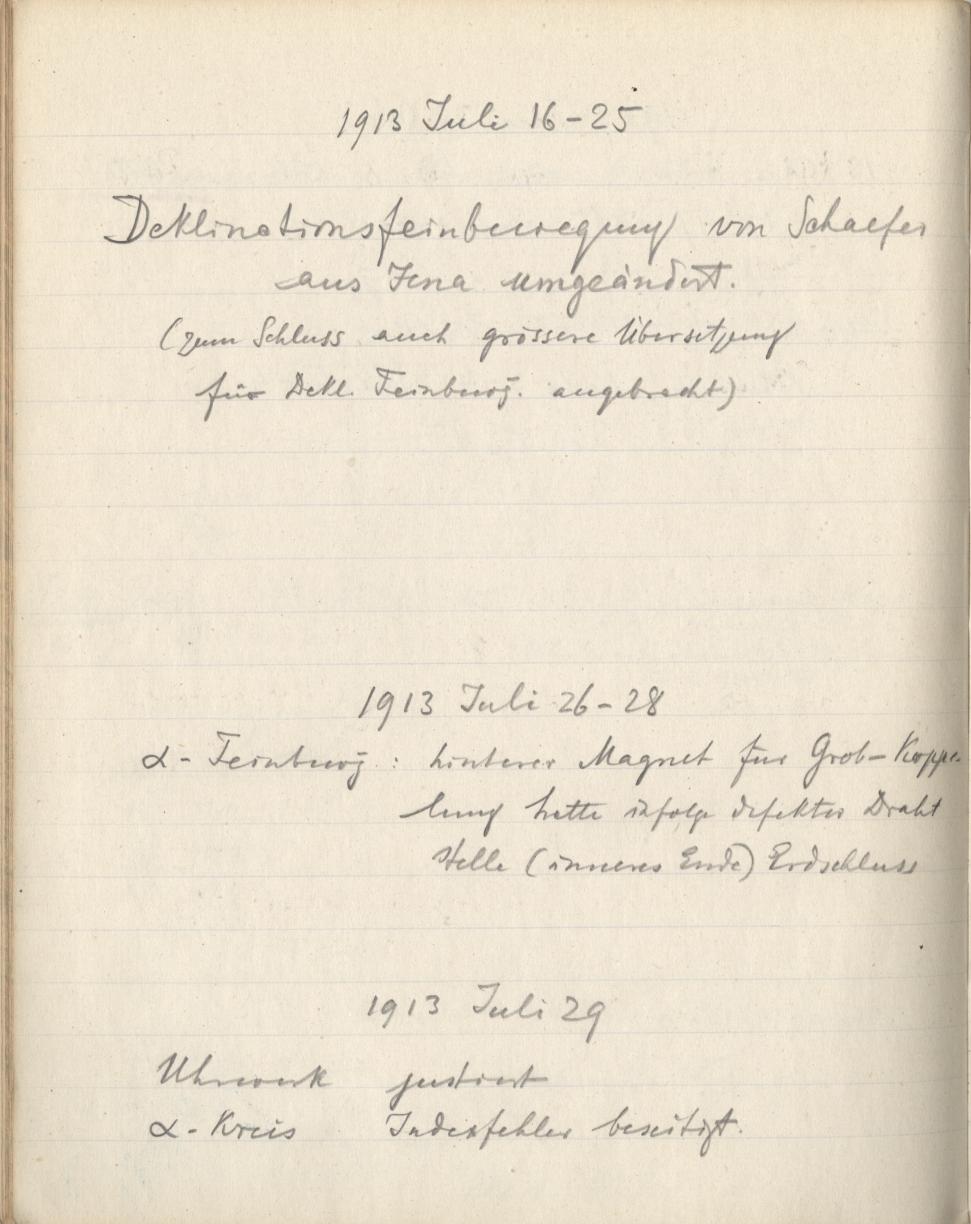 1913 Juli 16-25
Deklinationsfeinbewegung von Schaefer
aus Jena umgeändert.
(zum Schluss auch grössere Übersetzung
für Dekl. Feinbwg. angebracht)
1913 Juli 26-28
α-Feinbwg: hinterer Magnet für Grob-Koppe-
lung hatte infolge defekter Draht
stelle (inneres Ende) Erdschluss
1913 Juli 29
Uhrwerk justiert
α-Kreis Indexfehler beseitigt.